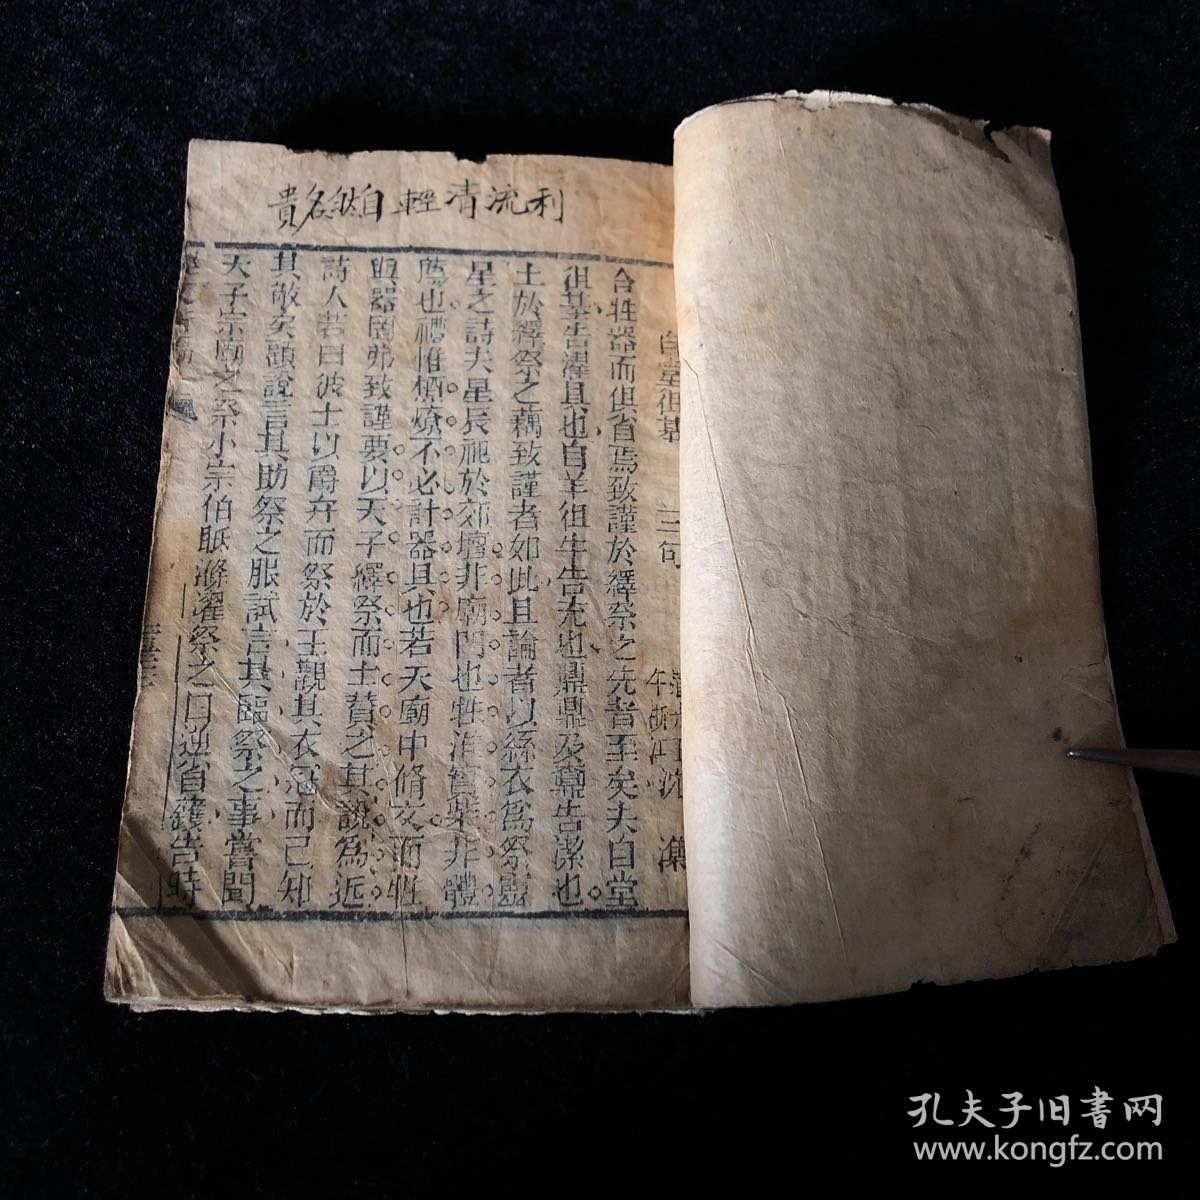 利流清輕自然名貴
自堂徂基 三句
午 浙江 沈
合牲器而俱省焉致謹於繹祭之先者至矣夫自堂
徂基告濯具也自羊徂牛告充也鼐鼎及鼒告潔也
士於繹祭之藉致謹者如此且論者以絲衣爲祭靈
星之詩夫星辰祀於郊壇非廟門也牲滌實柴非體
薦也禮惟槱燎不必計器具也若天廟中脩文而牲
與器罔弗致謹要以天子繹祭而士贊之其說為近
詩人若曰彼士以爵弁而祭於王觀其衣冠而已知
其敬矣願說言其助祭之服試言其臨祭之事嘗聞
天子宗廟之祭小宗伯眡滌濯祭之日逆省鑊告時
孔夫子旧书网
www.kongfz.com